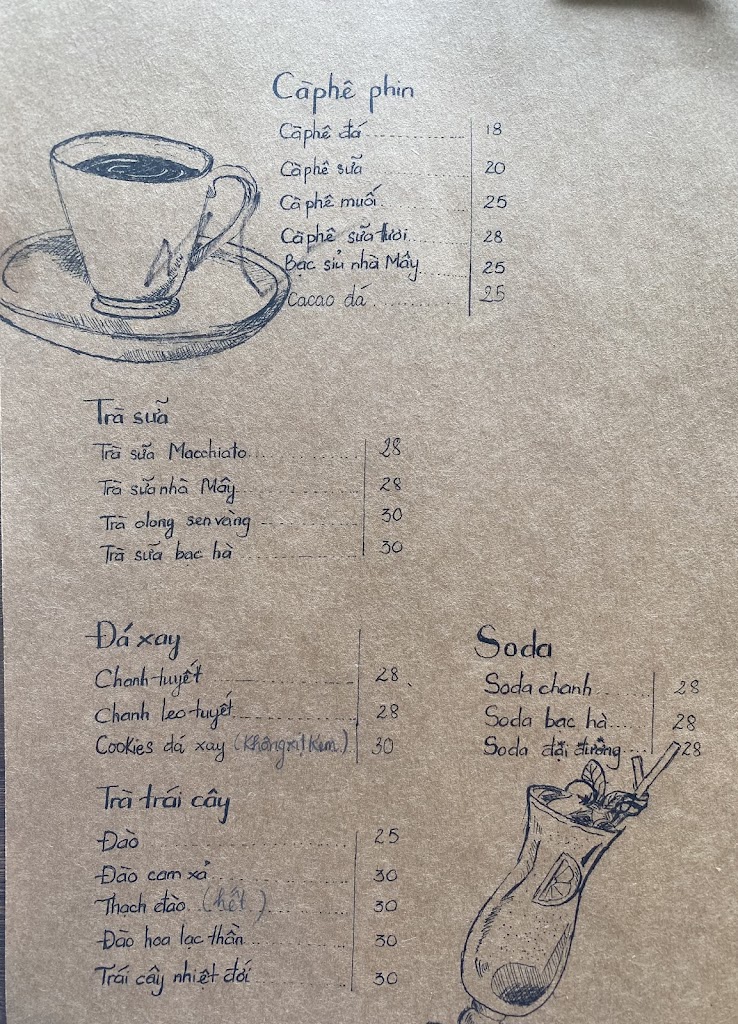 Cà phê phin
Cà phê đá 18
Cà phê sữa 20
Cà phê muối 25
Cà phê sữa tươi 28
Bạc siủ nhà Mây 25
Cacao đá 25
Trà sữa
Trà sữa Macchiato 28
Trà sữa nhà Mây 28
Trà olong sen vàng 30
Trà sữa bạc hà 30
Đá xay
Chanh tuyết 28
Chanh leo tuyết 28
Cookies đá xay (Không xịt kem) 30
Soda
Soda chanh 28
Soda bạc hà 28
Soda đại dương 28
Trà trái cây
Đào 25
Đào cam xả 30
Thạch đào (hết) 30
Đào hoa lạc thần 30
Trái cây nhiệt đới 30